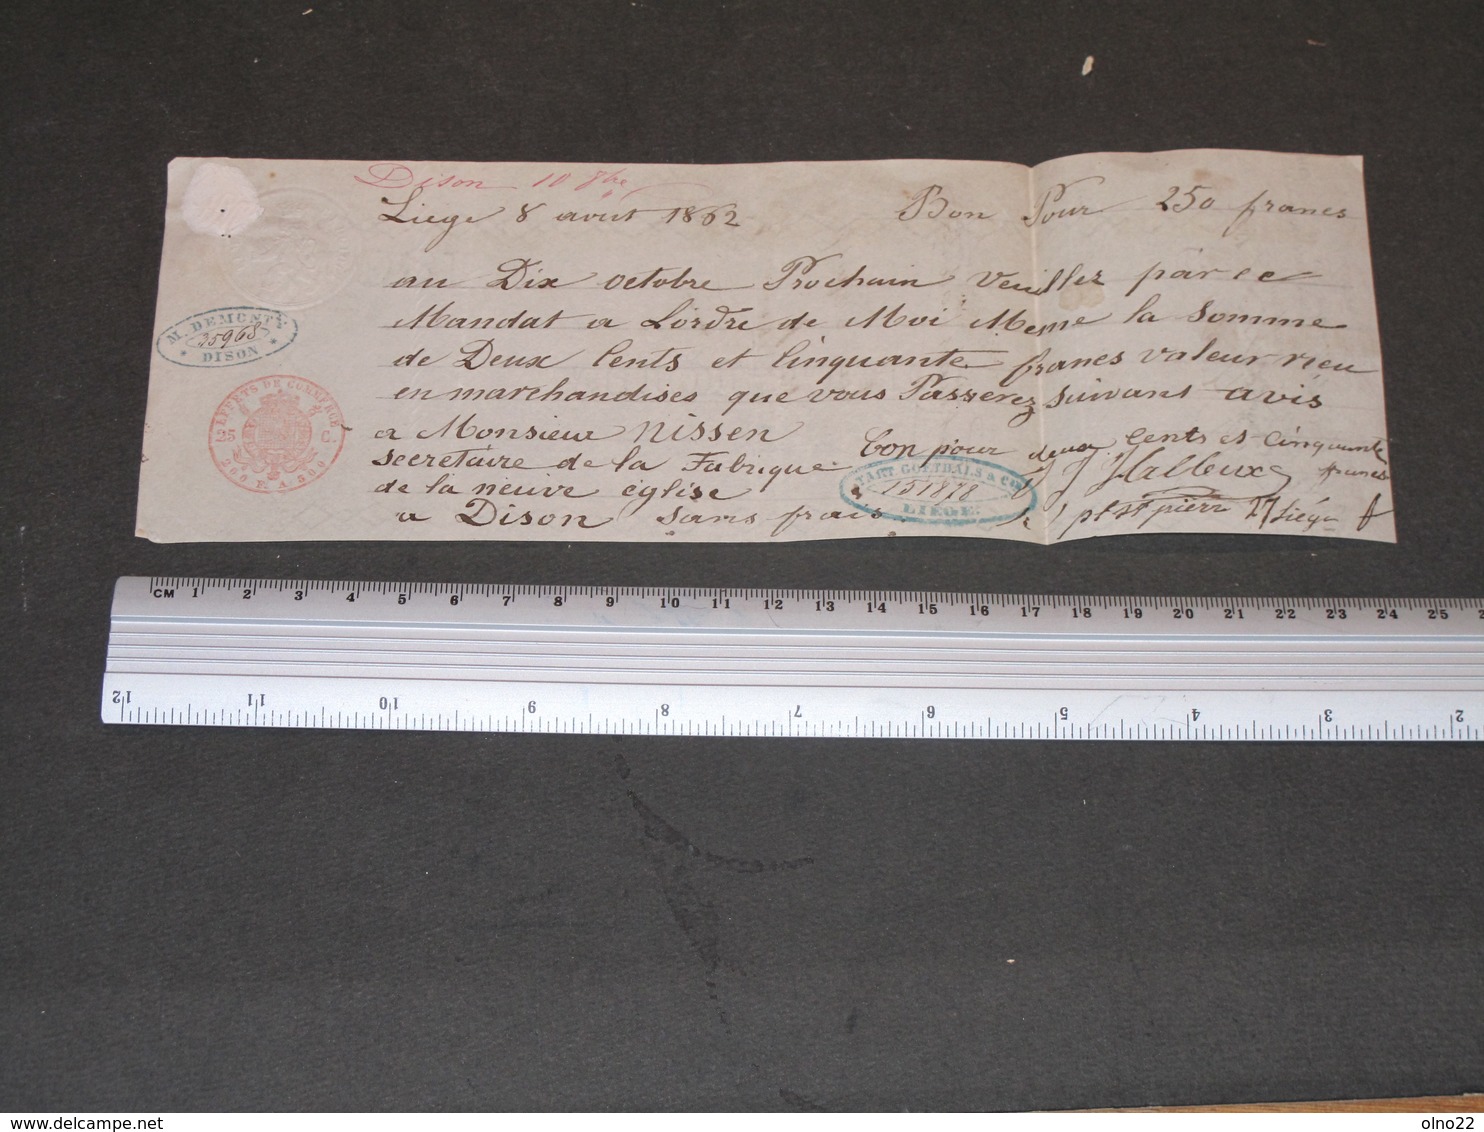 Dison 10 8bre
Liege 8 aout 1862 Bon Pour 250 francs
au Dix octobre Prochain Veuillez par ce
Mandat a Lordre de Moi Meme la Somme
de Deux Cents et Cinquante francs valeur
en marchandises que vous Passerez suivant avis
a Monsieur Nissen
secretaire de la Fabrique
de la neuve église
a Dison sans frais
bon pour deux Cents et Cinquante
francs
pl. st pierre 27 Liége
M. DEMONTY
25968
DISON
EFFETS DE COMMERCE
25 C.
200 F. A 500
GOETHALS & CIE
151878
LIÉGE
CM 1 2 3 4 5 6 7 8 9 10 11 12 13 14 15 16 17 18 19 20 21 22 23 24 25
12 11 10 9 8 7 6 5 4 3 2
olno22